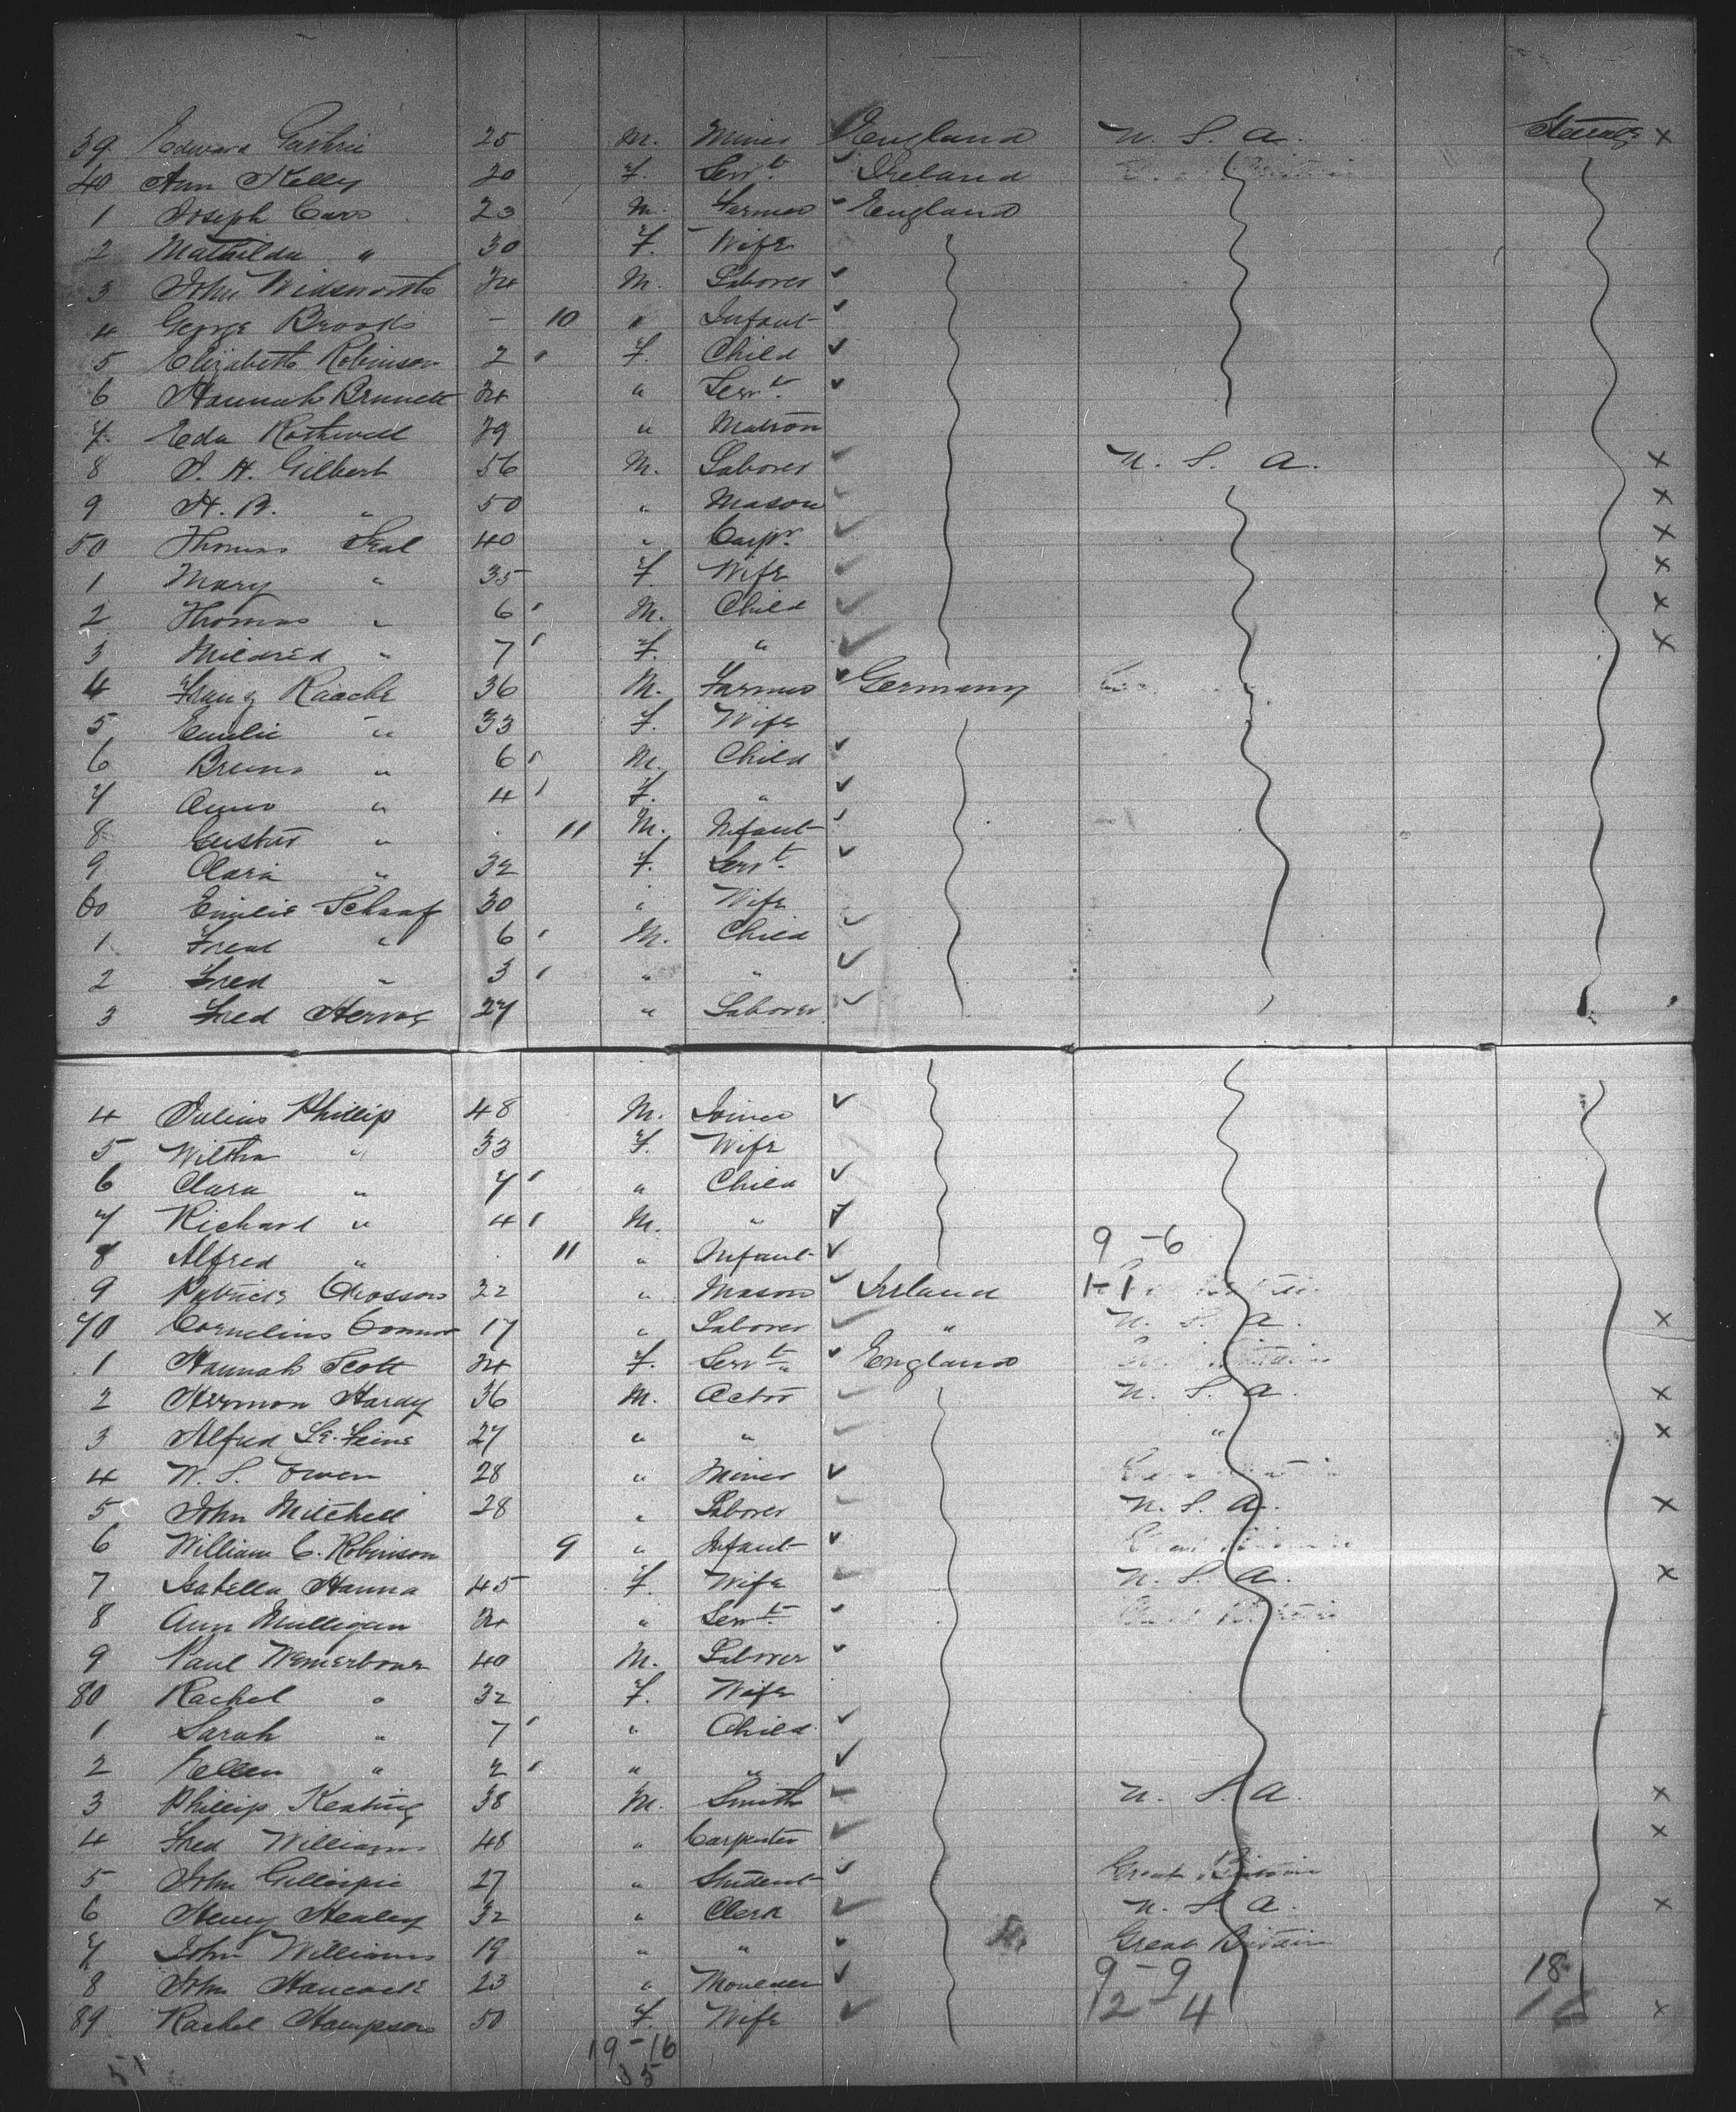 39 Edward Guthrie 25 M. Miner England U. S. A. Steerage x
40 Ann Kelly 20 F. Servt. Ireland
1 Joseph Carr 23 M. Farmer England
2 Mathilda " 30 F. Wife
3 John Widsworth 24 M. Laborer
4 George Brooks - 10 " Infant
5 Elizabeth Robinson 2 F. Child
6 Hannah Brunett 24 " Servt
7 Eda Rothwell 29 " Matron
8 J. H. Gilbert 56 M. Laborer U. S. A. x
9 H. B. " 50 " Mason x
50 Thomas Seal 40 " Carpr. x
1 Mary " 35 F. Wife x
2 Thomas " 6 M. Child x
3 Mildred " 7 F. " x
4 Franz Raache 36 M. Farmer Germany
5 Emilie " 33 F. Wife
6 Bruno " 6 M. Child
7 Anna " 4 F. "
8 Gustav " 11 M. Infant
9 Clara " 32 F. Servt.
60 Emilie Schaaf 30 " Wife
1 " 6 M. Child
2 Fred " 3 " "
3 Fred 27 " Laborer
4 Julius Phillip 48 M. Joiner
5 " 33 F. Wife
6 Clara " 7 " Child
7 Richard " 4 M. "
8 Alfred " 11 " Infant 9-6
9 Patrick Crosson 22 " Mason Ireland 1-1
70 Cornelius Connor 17 " Laborer " U. S. A. x
1 Hannah Scott 24 F. Servt. England
2 Hermon Hardy 36 M. Actor U. S. A. x
3 Alfred 27 " " " x
4 W. S. Owen 28 " Miner
5 John Mitchell 28 " Laborer U. S. A. x
6 William C. Robinson 9 " Infant
7 Isabella Hanna 45 F. Wife U. S. A. x
8 Ann Mulligan 24 " Servt.
9 Paul 40 M. Laborer
80 Rachel " 32 F. Wife
1 Sarah " 7 " Child
2 Ellen " 2 " "
3 Phillip Keating 38 M. Smith U. S. A. x
4 Fred Williams 48 " Carpenter x
5 John Gillespie 27 " Student Great Britain
6 Henry Healey 32 " Clerk U. S. A. x
7 John Williams 19 " " Great Britain
8 John Hancock 23 " Moulder 9-9 18
89 Rachel Hampson 50 F. Wife 12-4 16 x
19-16
51 35